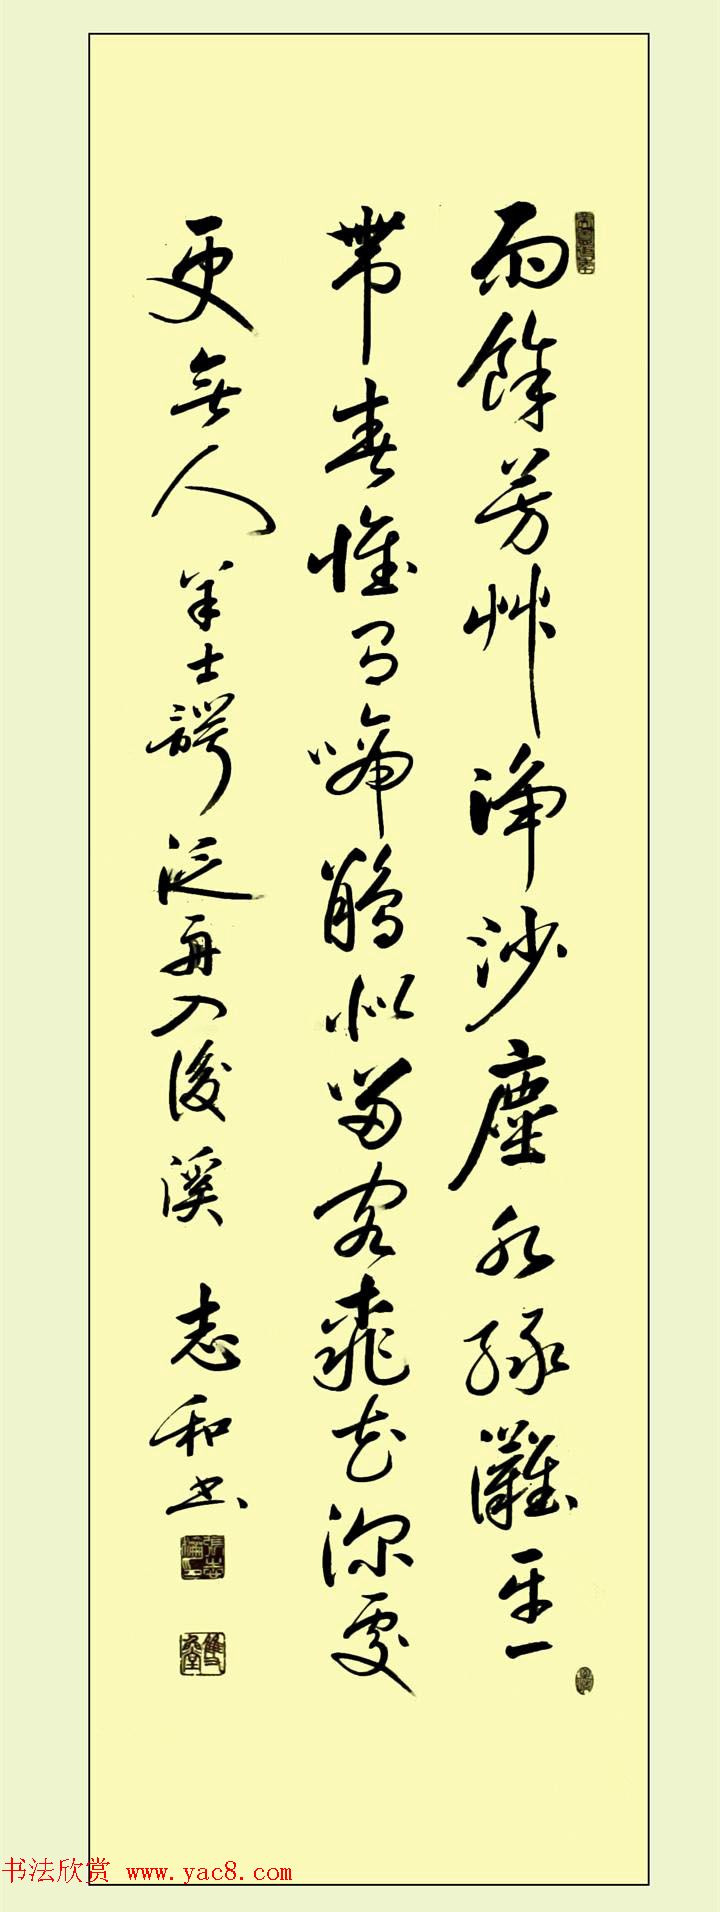 雨餘芳艸淨沙塵水綠灘平一
帶春惟有啼鵑似留客桃花深處
更無人羊士諤泛舟入後溪志和书
书法欣赏 www.yac8.com